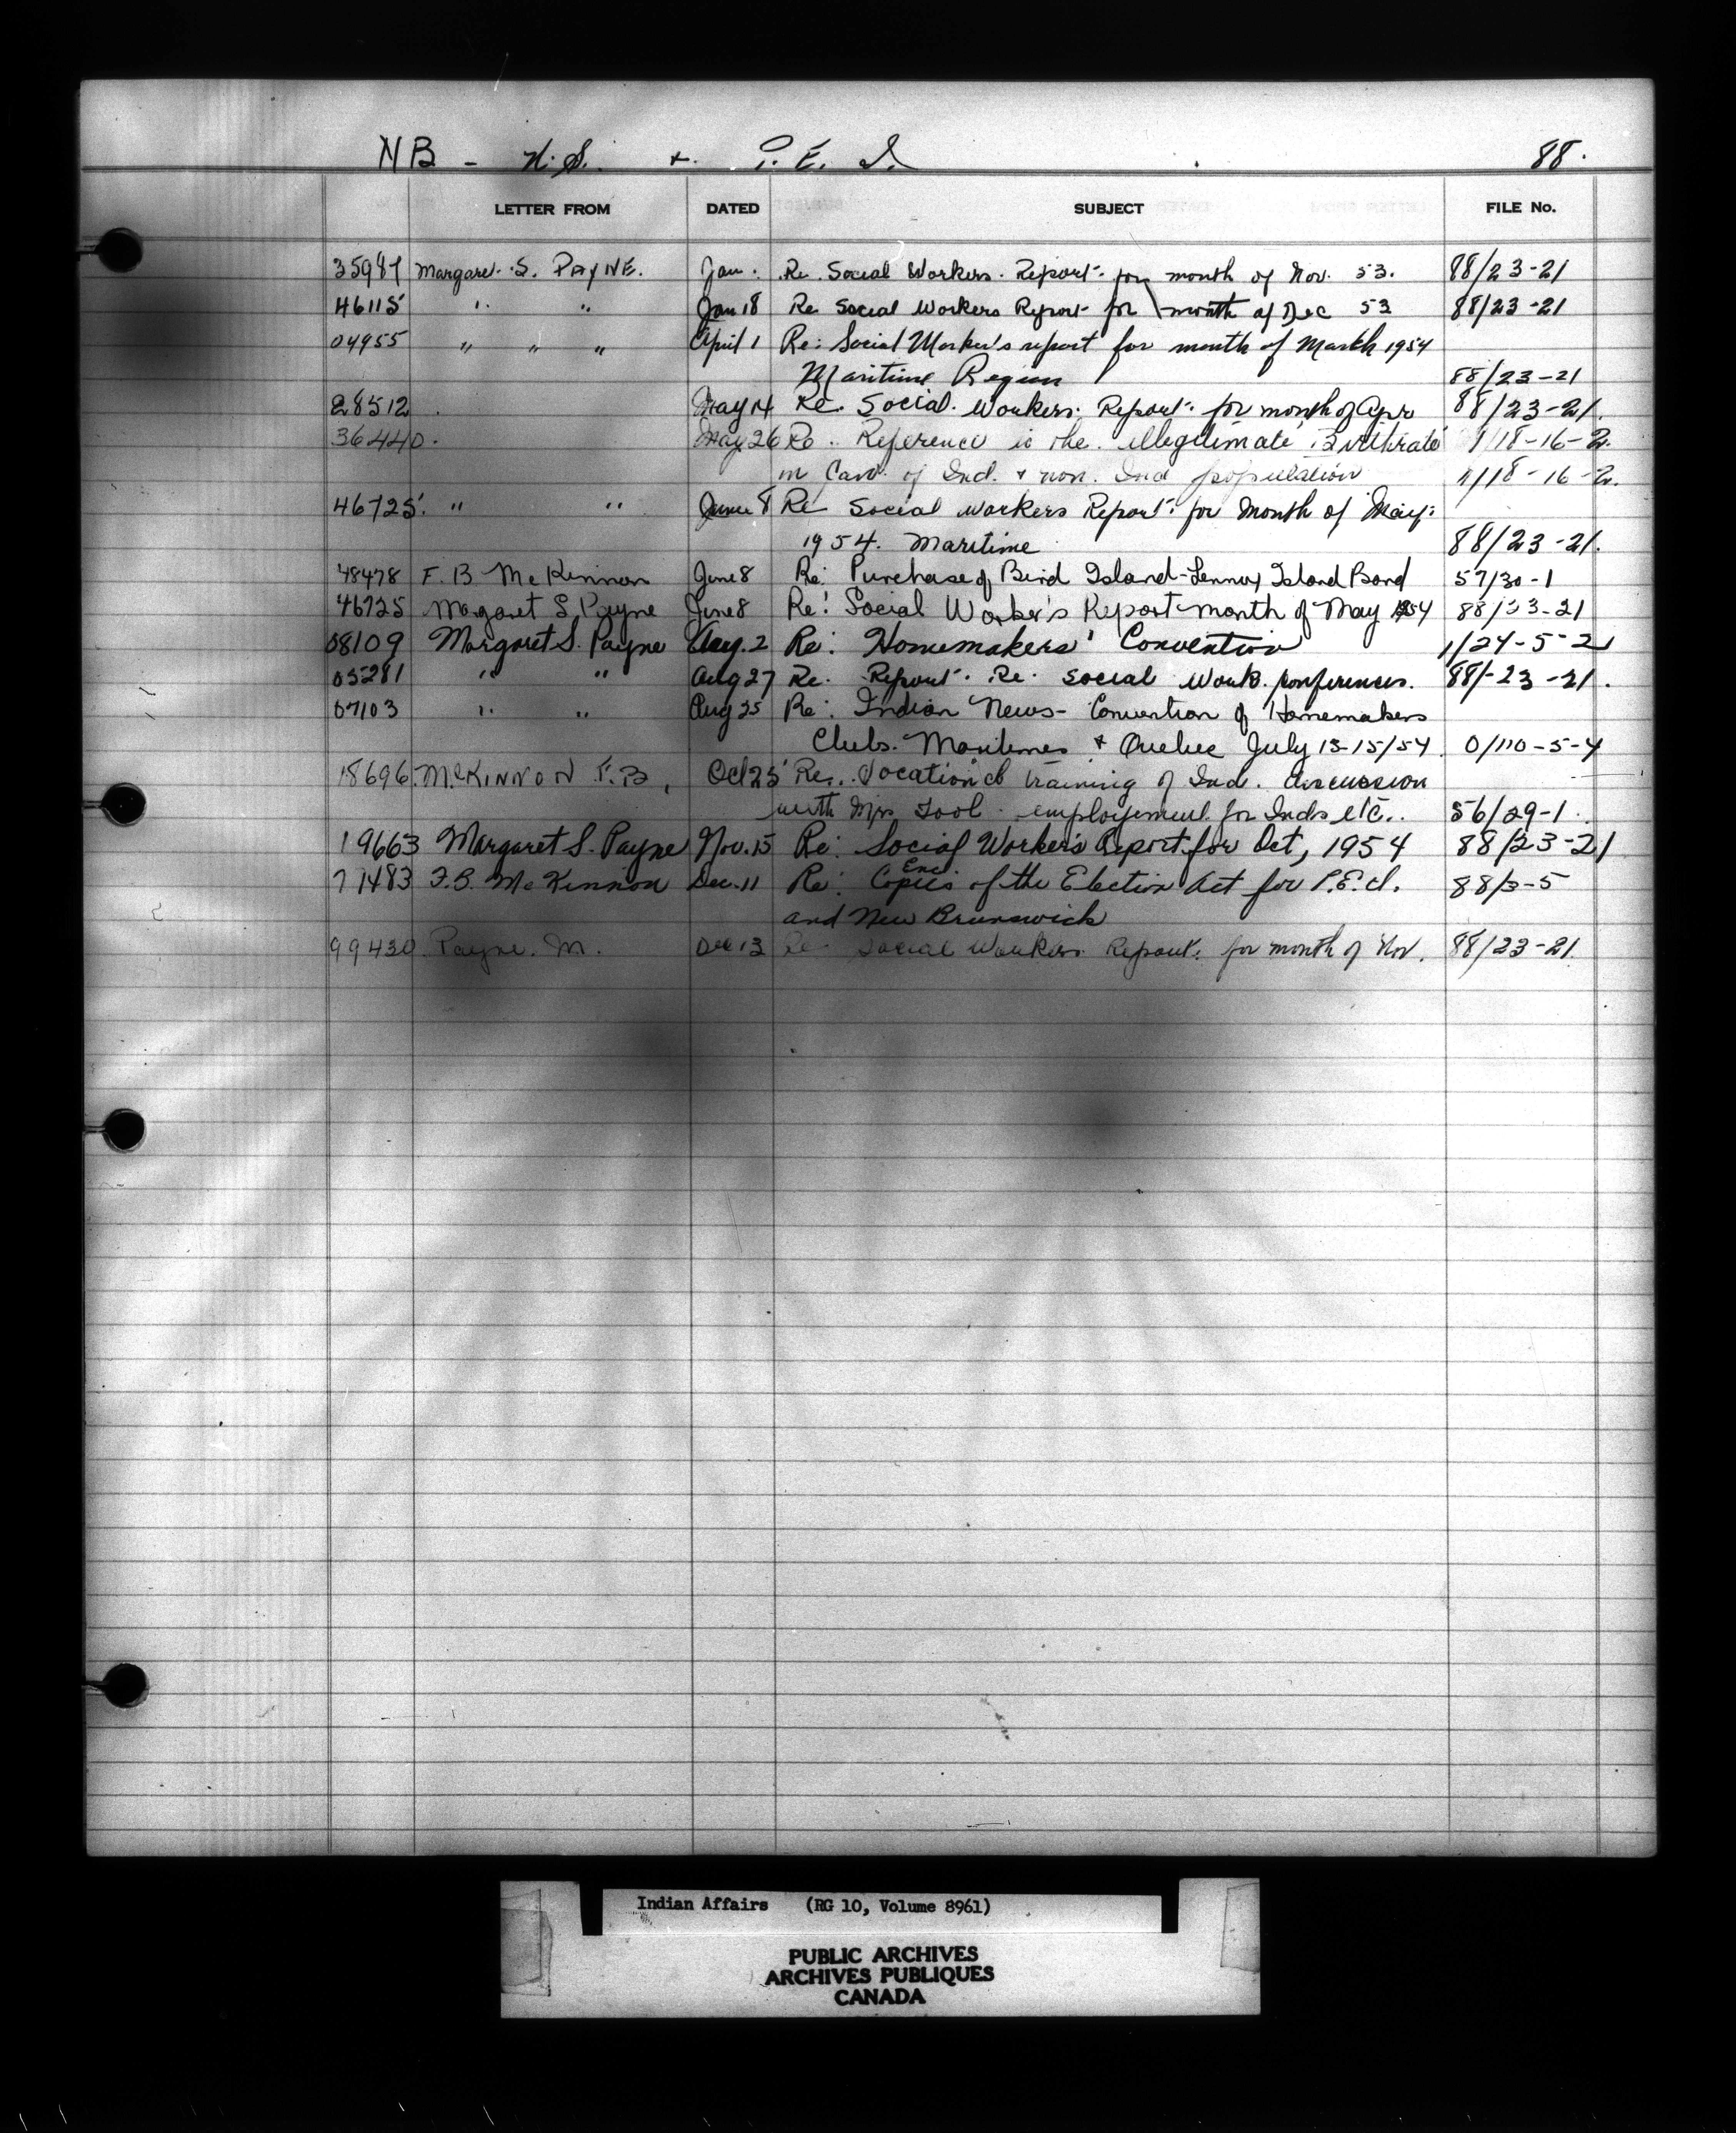 NB - N.S. + P. E. I. 88.
LETTER FROM DATED SUBJECT FILE No.
35987 Margaret S. PAYNE. Jan. Re Social Workers Report for month of Nov. 53. 88/23-21
46115 " " Jan 18 Re Social Workers Report for month of Dec 53 88/23-21
04955 " " " April 1 Re: Social Worker's report for month of March 1954
Maritime Region 88/23-21
28512 May 14 Re. Social Workers Report for month of Apr 88/23-21.
36440. May 26 Re. Reference to the illegitimate Birthrate 1/18-16-2.
in Can. of Ind. + non. Ind population 1/18-16-2.
46725. " " June 8 Re Social Workers Report for Month of May
1954. Maritime 88/23-21.
48478 F. B. McKinnon June 8 Re: Purchase of Bird Island-Lennox Island Band 57/30-1
46725 Margaret S Payne June 8 Re: Social Worker's Report-month of May 1954 88/23-21
08109 Margaret S. Payne Aug. 2 Re: Homemakers' Convention 1/24-5-21
05281 " " Aug 27 Re. Report Re. Social Work. conferences. 88/-23-21.
07103 " " Aug 25 Re: Indian News- Convention of Homemakers
Clubs. Maritimes + Quebec July 13-15/54. 0/110-5-4
18696. McKINNON F.B, Oct 25 Re. Vocational training of Ind. discussion
with Mrs employement for Inds etc.. 56/29-1.
19663 Margaret S. Payne Nov. 15 Re: Social Worker's Report for Oct, 1954 88/23-21
71483 F.B. McKinnon Dec. 11 Re: Enc Copies of the Election Act for P.E.I. 88/3-5
and New Brunswick
99430. Payne. M. Dec 13 Re Social Workers Report. for month of Nov. 88/23-21.
Indian Affairs (RG 10, Volume 8961)
PUBLIC ARCHIVES
ARCHIVES PUBLIQUES
CANADA